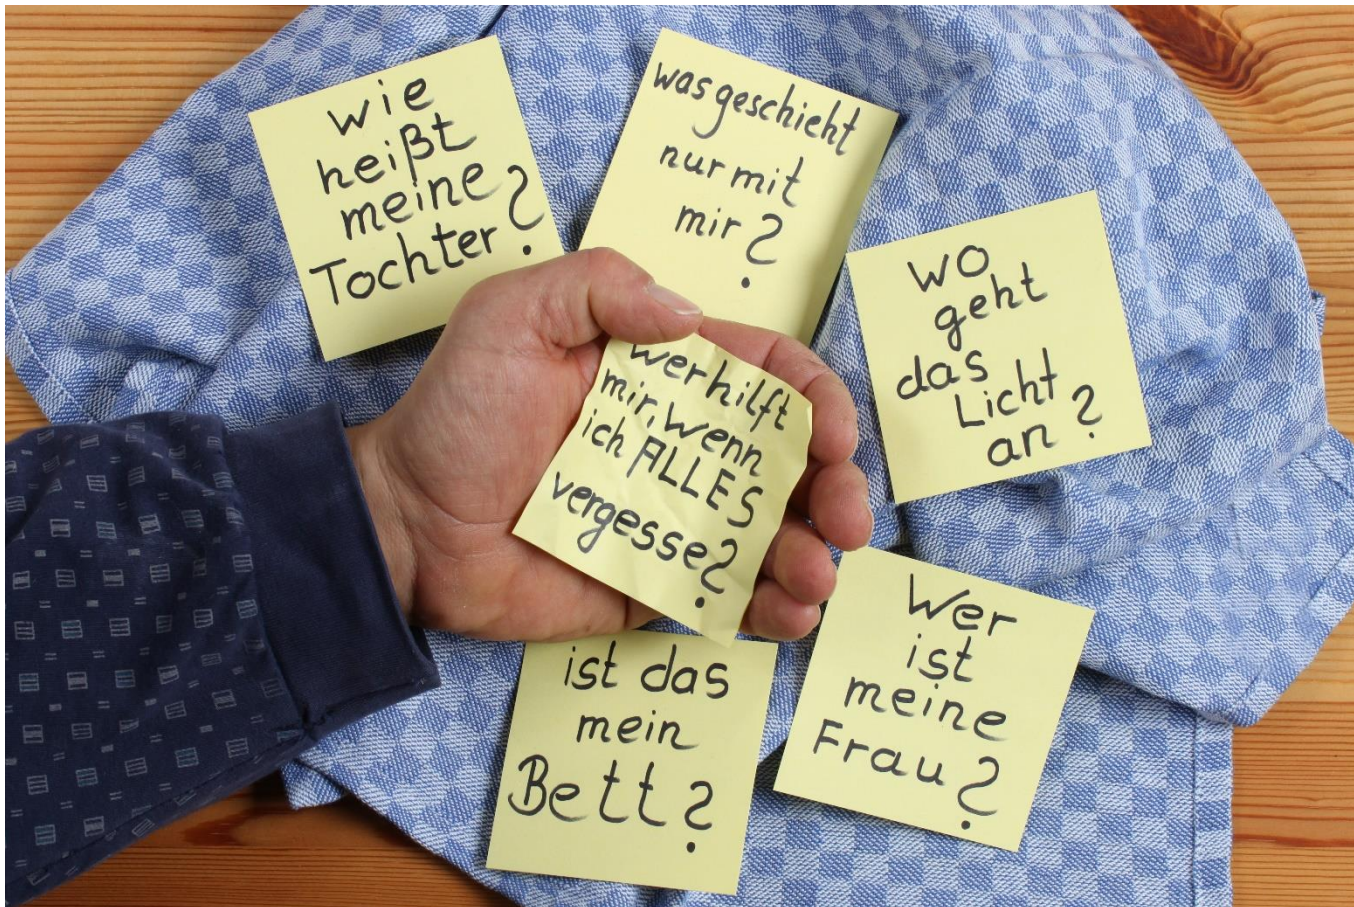 wie
heißt
meine
Tochter?
was geschieht
nur mit
mir?
wo
geht
das
Licht
an?
wer hilft
mir, wenn
ich ALLES
vergesse?
ist das
mein
Bett?
Wer
ist
meine
Frau?